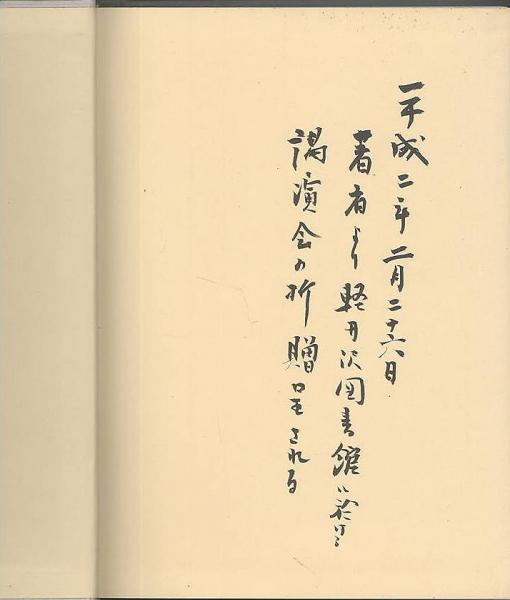 平成二年二月二十六日
著者より軽井沢図書館に於ける
講演会の折贈呈される